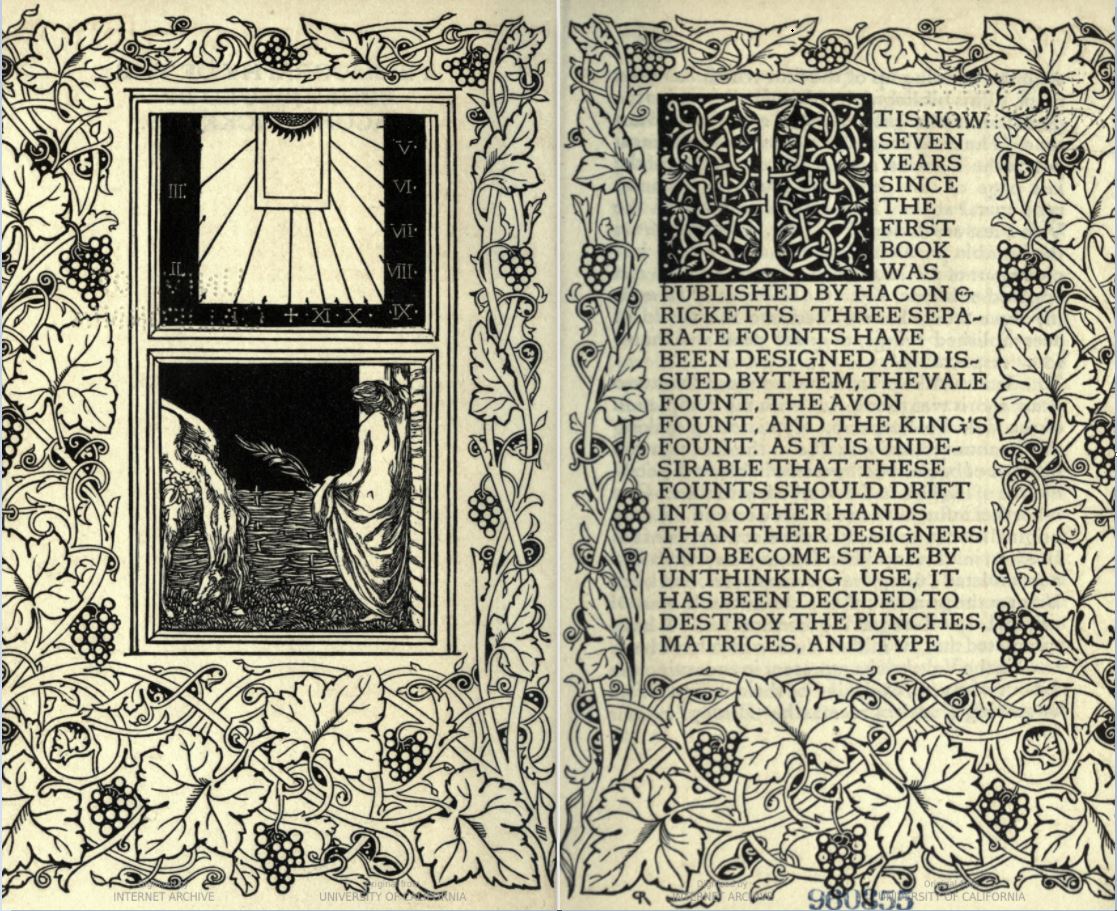 V·
III.
VI·
VII·
II.
VIII·
I + XI · X · IX·
IT IS NOW
SEVEN
YEARS
SINCE
THE
FIRST
BOOK
WAS
PUBLISHED BY HACON &
RICKETTS. THREE SEPA-
RATE FOUNTS HAVE
BEEN DESIGNED AND IS-
SUED BY THEM, THE VALE
FOUNT, THE AVON
FOUNT, AND THE KING'S
FOUNT. AS IT IS UNDE-
SIRABLE THAT THESE
FOUNTS SHOULD DRIFT
INTO OTHER HANDS
THAN THEIR DESIGNERS'
AND BECOME STALE BY
UNTHINKING USE, IT
HAS BEEN DECIDED TO
DESTROY THE PUNCHES,
MATRICES, AND TYPE
CR
980355
Digitized by
INTERNET ARCHIVE
Original from
UNIVERSITY OF CALIFORNIA
Digitized by
INTERNET ARCHIVE
Original from
UNIVERSITY OF CALIFORNIA